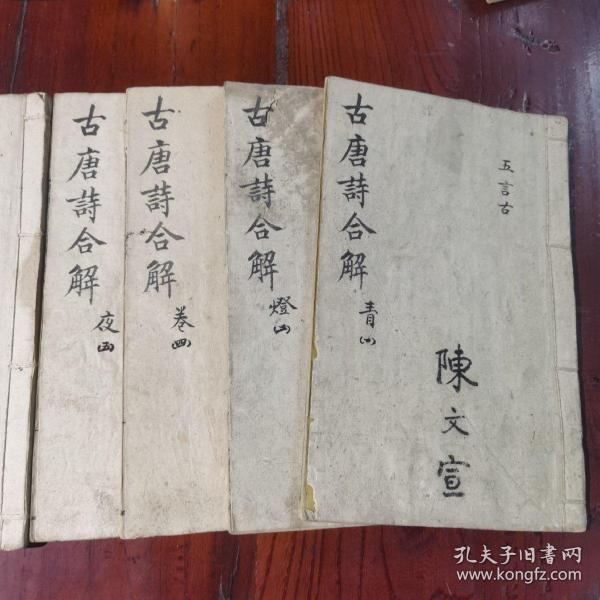 五言古
陳文宣
古唐詩合解
青
古唐詩合解
燈
古唐詩合解
卷
四
古唐詩合解
夜
孔夫子旧書网
www.kongfz.com